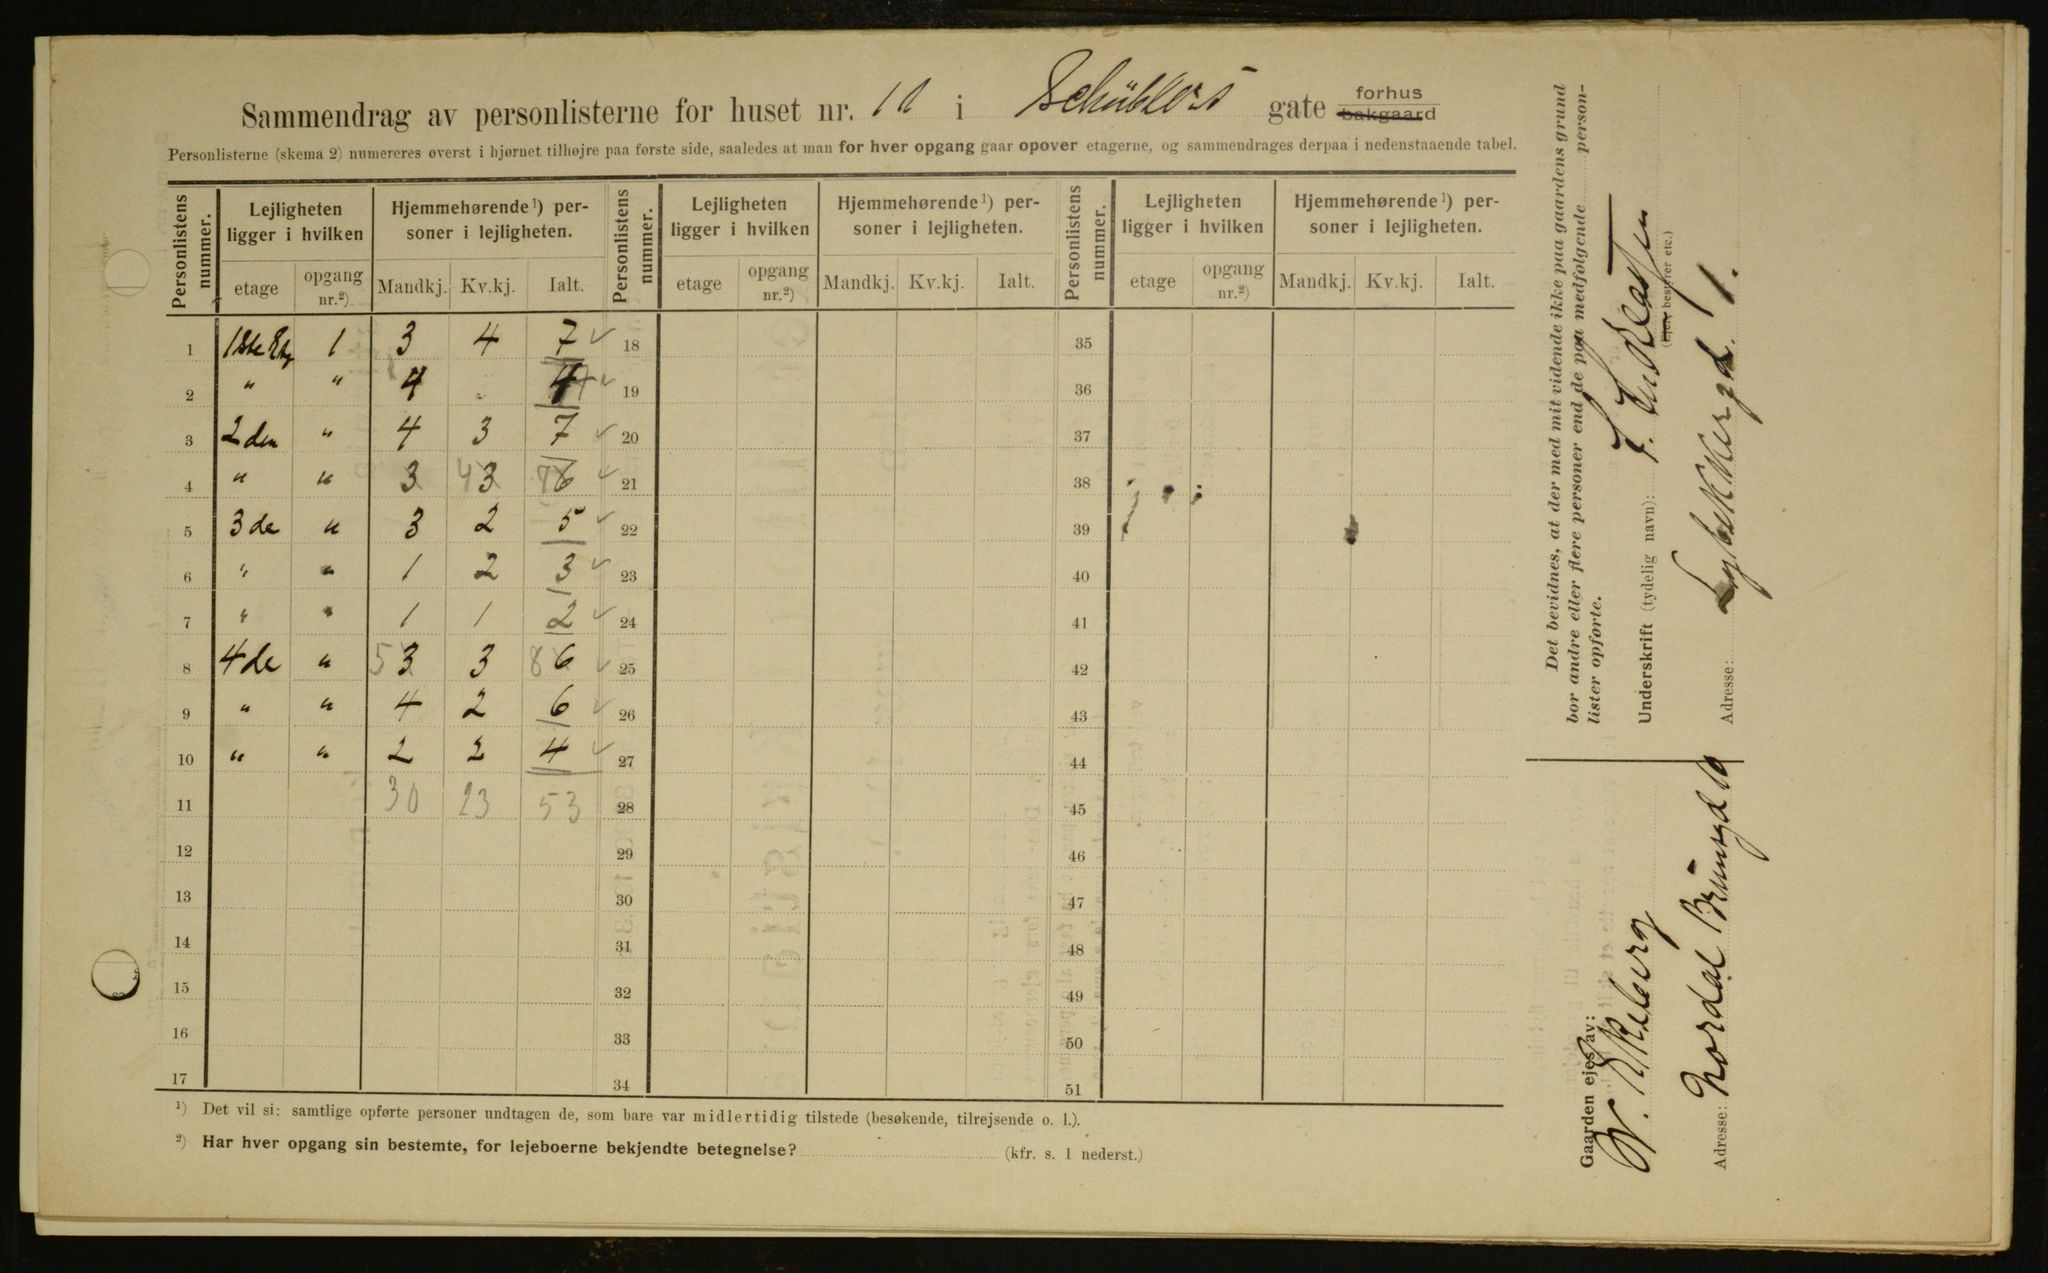 Sammendrag av personlisterne for huset nr. 10 i Schüblers gate forhus bakgaard
Personlisterne (skema 2) numereres øverst i hjørnet tilhøjre paa første side, saaledes at man for hver opgang gaar opover etagerne, og sammendrages derpaa i nedenstaaende tabel.
Personlistens nummer. Lejligheten ligger i hvilken Hjemmehørende ¹) personer i lejligheten. Personlistens nummer. Lejligheten ligger i hvilken Hjemmehørende ¹) personer i lejligheten. Personlistens nummer. Lejligheten ligger i hvilken Hjemmehørende ¹) personer i lejligheten.
etage opgang nr.²) Mandkj. Kv.kj. Ialt. etage opgang nr.²) Mandkj. Kv.kj. Ialt. etage opgang nr.²) Mandkj. Kv.kj. Ialt.
1 1ste Etg 1 3 4 7 ✓ 18 35
2 " " 4 . 4 ✓ 19 36
3 2den " 4 3 7 ✓ 20 37
4 " " 3 4 3 7 6 ✓ 21 38
5 3de " 3 2 5 ✓ 22 39
6 " " 1 2 3 ✓ 23 40
7 " " 1 1 2 ✓ 24 41
8 4de " 5 3 3 8 6 ✓ 25 42
9 " " 4 2 6 ✓ 26 43
10 " " 2 2 4 ✓ 27 44
11 30 23 53 28 45
12 29 46
13 30 47
14 31 48
15 32 49
16 33 50
17 34 51
¹) Det vil si: samtlige opførte personer undtagen de, som bare var midlertidig tilstede (besøkende, tilrejsende o. l.).
²) Har hver opgang sin bestemte, for lejeboerne bekjendte betegnelse? (kfr. s. 1 nederst.)
Det bevidnes, at der med mit vidende ikke paa gaardens grund
bor andre eller flere personer end de paa medfølgende personlister opførte.
Underskrift (tydelig navn):
(Ejer, bestyrer etc.)
Adresse: Lybekkergd. 1.
Gaarden ejes av:
W. Ekeberg
Adresse: Nordal Brunsgd 10